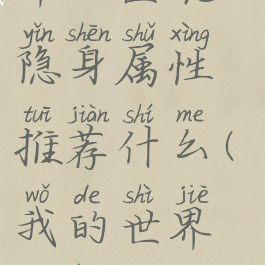 yǐn shēn shǔ xìng
隐身属性
tuī jiàn shí me
推荐什么(
wǒ de shì jiè
我的世界